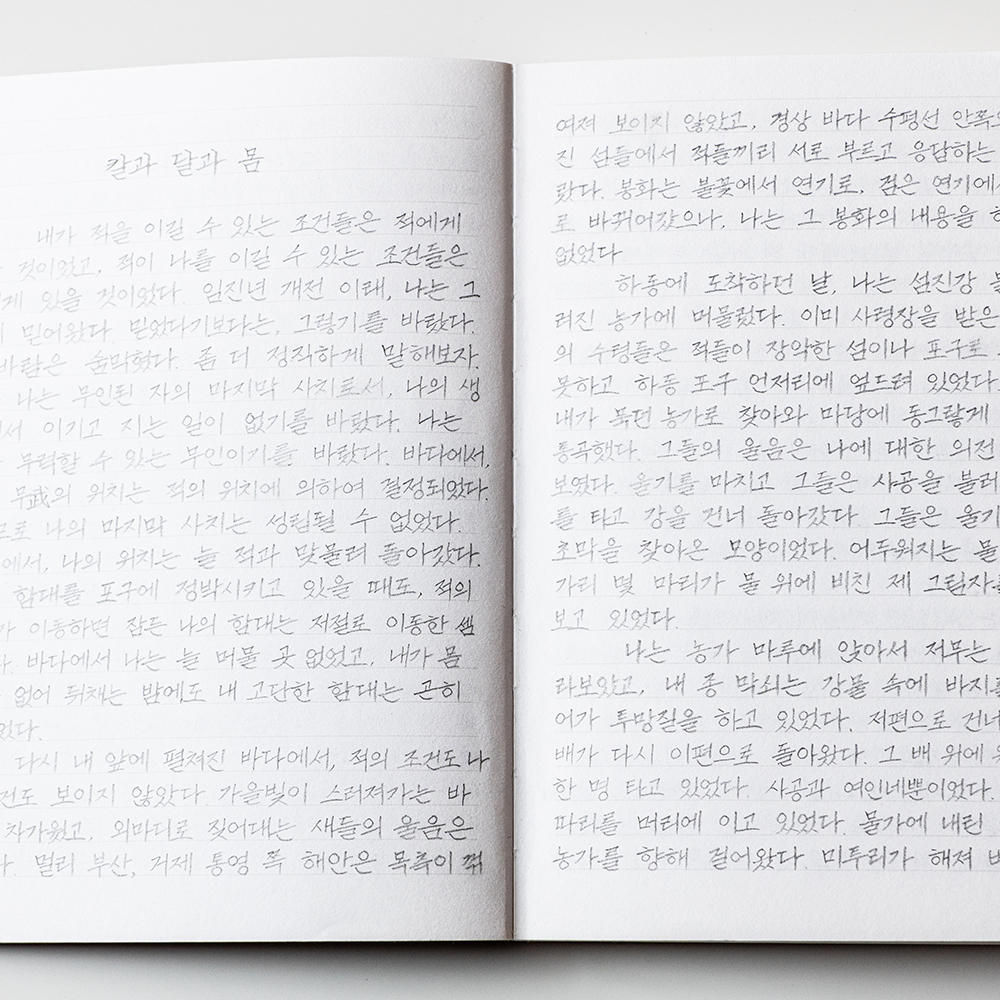 칼과 달과 몸
내가 적을 이길 수 있는 조건들은 적에게
것이었고, 적이 나를 이길 수 있는 조건들은
게 있을 것이었다. 임진년 개전 이래, 나는 그
믿어왔다. 믿었다기보다는, 그렇기를 바랐다.
바람은 숨막혔다. 좀 더 정직하게 말해보자.
나는 무인된 자의 마지막 사치로서, 나의 생
서 이기고 지는 일이 없기를 바랐다. 나는
무력할 수 있는 무인이기를 바랐다. 바다에서,
무武의 위치는 적의 위치에 의하여 결정되었다.
므로 나의 마지막 사치는 성립될 수 없었다.
에서, 나의 위치는 늘 적과 맞물려 돌아갔다.
함대를 포구에 정박시키고 있을 때도, 적의
가 이동하면 잠든 나의 함대는 저절로 이동한 셈
다. 바다에서 나는 늘 머물 곳 없었고, 내가 몸
없어 뒤채는 밤에도 내 고단한 함대는 곤히
었다.
다시 내 앞에 펼쳐진 바다에서, 적의 조건도 나
건도 보이지 않았다. 가을빛이 스러져가는 바
차가웠고, 외마디로 짖어대는 새들의 울음은
다. 멀리 부산, 거제 통영 쪽 해안은 목측이 꺾
여져 보이지 않았고, 경상 바다 수평선 안쪽으
진 섬들에서 적들끼리 서로 부르고 응답하는
랐다. 봉화는 불꽃에서 연기로, 짙은 연기에서
로 바뀌어갔으나, 나는 그 봉화의 내용을 해
없었다
하동에 도착하던 날, 나는 섬진강 물
러진 농가에 머물렀다. 이미 사령장을 받은
의 수령들은 적들이 장악한 섬이나 포구로
못하고 하동 포구 언저리에 엎드려 있었다.
내가 묵던 농가로 찾아와 마당에 동그랗게
통곡했다. 그들의 울음은 나에 대한 의전
보였다. 울기를 마치고 그들은 사공을 불러
를 타고 강을 건너 돌아갔다 그들은 울기
초막을 찾아온 모양이었다. 어두워지는 물
가리 몇 마리가 물 위에 비친 제 그림자를
보고 있었다.
나는 농가 마루에 앉아서 저무는
라보았고, 내 종 막쇠는 강물 속에 바지를
어가 투망질을 하고 있었다. 저편으로 건너
배가 다시 이편으로 돌아왔다. 그 배 위에
한 명 타고 있었다. 사공과 여인네뿐이었다.
파리를 머리에 이고 있었다. 물가에 내린
농가를 향해 걸어왔다. 미투리가 해져